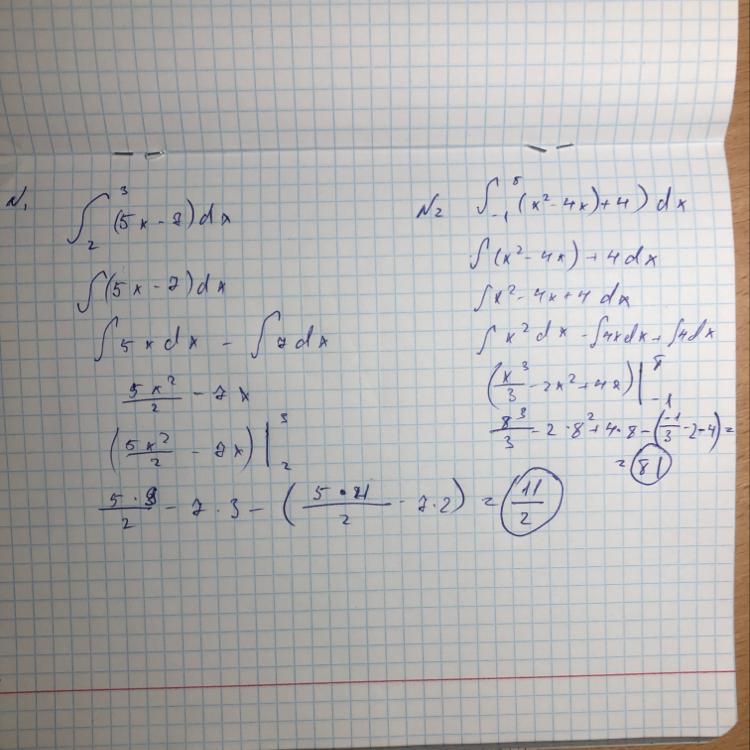 N1
∫₂³ (5x - 7) dx
∫(5x - 7) dx
∫ 5x dx - ∫ 7 dx
5x²/2 - 7x
(5x²/2 - 7x) |₂³
5·9/2 - 7·3 - (5·4/2 - 7·2) = 11/2
N2
∫₋₁⁸ (x² - 4x) + 4) dx
∫(x² - 4x) + 4 dx
∫x² - 4x + 4 dx
∫ x² dx - ∫4x dx + ∫4 dx
(x³/3 - 2x² + 4x) |₋₁⁸
8³/3 - 2·8² + 4·8 - (-1/3 - 2 - 4) =
= 81